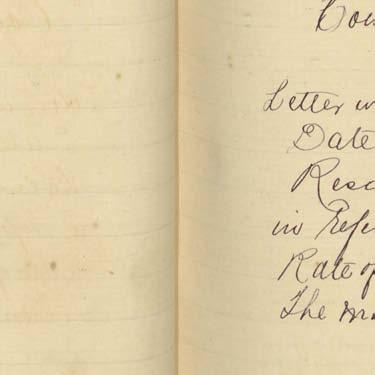 Con
Letter w
Date
Reso
in Refe
Rate of
The ma